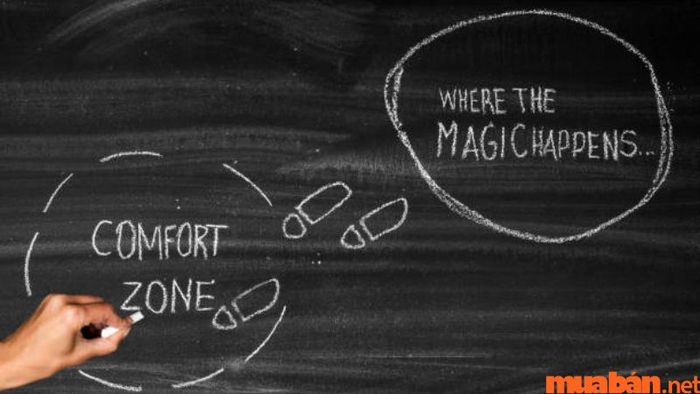 WHERE THE
MAGIC HAPPENS...
COMFORT
ZONE
muabán.net